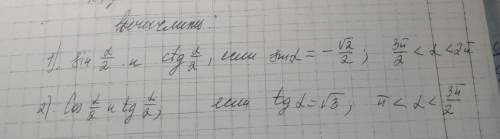 вычислить:
1). sin α/2 и ctg α/2, если sinα = -√2/2; 3π/2 < α < 2π
2). Cos α/2 и tg α/2, если tgα = √3, π < α < 3π/2